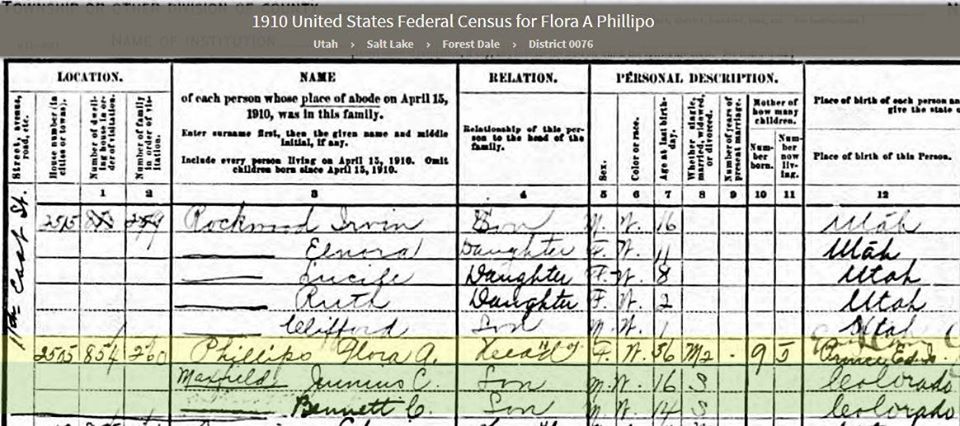 1910 United States Federal Census for Flora A Phillipo
Utah › Salt Lake › Forest Dale › District 0076
NAME OF INSTITUTION
LOCATION. NAME RELATION. PERSONAL DESCRIPTION.
Street, avenue, road, etc.
House number (in cities or towns).
Number of dwelling house in order of visitation.
Number of family in order of visitation.
of each person whose place of abode on April 15, 1910, was in this family.
Enter surname first, then the given name and middle initial, if any.
Include every person living on April 15, 1910. Omit children born since April 15, 1910.
Relationship of this person to the head of the family.
Sex.
Color or race.
Age at last birthday.
Whether single, married, widowed, or divorced.
Number of years of present marriage.
Mother of how many children.
Number born.
Number now living.
Place of birth of each person an
give the state o
Place of birth of this Person.
1 2 3 4 5 6 7 8 9 10 11 12
11th East St.
2515 853 259 Rockwood Irvin Son M. W. 16 Utah
Elnora Daughter F. W. 11 Utah
Lucile Daughter F. W. 8 Utah
Ruth Daughter F. W. 2 Utah
Clifford Son W. 1 Utah
2505 854 260 Phillipo Flora A. Head F. W. 56 M2 9 5 Prince Ed. I.
Maxfield Junius C. Son M. W. 16 S Colorado
Bennett C. Son M. W. 14 S Colorado